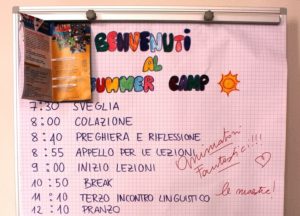 BENVENUTI
AL
SUMMER CAMP
7:30 SVEGLIA
8:00 COLAZIONE
8:40 PREGHIERA E RIFLESSIONE
8:55 APPELLO PER LE LEZIONI
9:00 INIZIO LEZIONI
10:50 BREAK
11:10 TERZO INCONTRO LINGUISTICO
12:10 PRANZO
Animatori
Fantastici!!!!
le mastre!